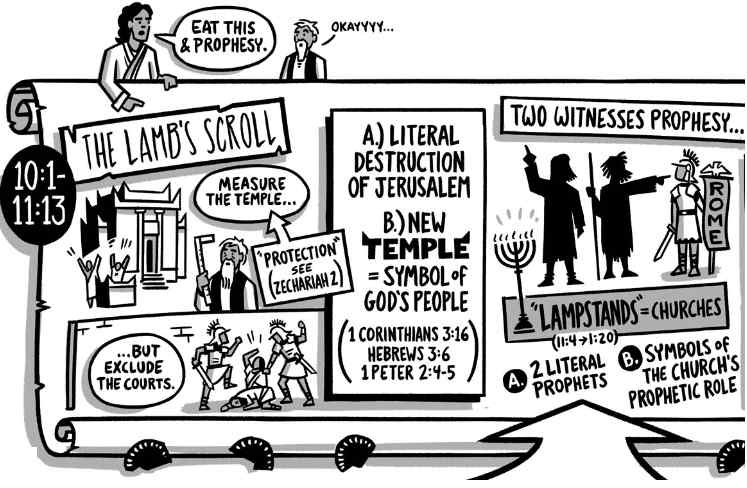 EAT THIS
& PROPHESY.
OKAYYYY...
THE LAMB'S SCROLL
10:1-
11:13
MEASURE
THE TEMPLE...
"PROTECTION"
SEE
(ZECHARIAH 2)
...BUT
EXCLUDE
THE COURTS.
A.) LITERAL
DESTRUCTION
OF JERUSALEM
B.) NEW
TEMPLE
= SYMBOL OF
GOD'S PEOPLE
(1 CORINTHIANS 3:16
HEBREWS 3:6
1 PETER 2:4-5)
TWO WITNESSES PROPHESY...
ROME
"LAMPSTANDS" = CHURCHES
(11:4→1:20)
A. 2 LITERAL
PROPHETS
B. SYMBOLS OF
THE CHURCH'S
PROPHETIC ROLE